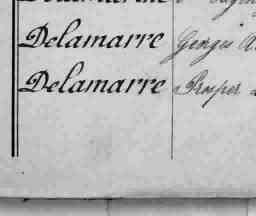 Delamarre Georges A
Delamarre Prosper